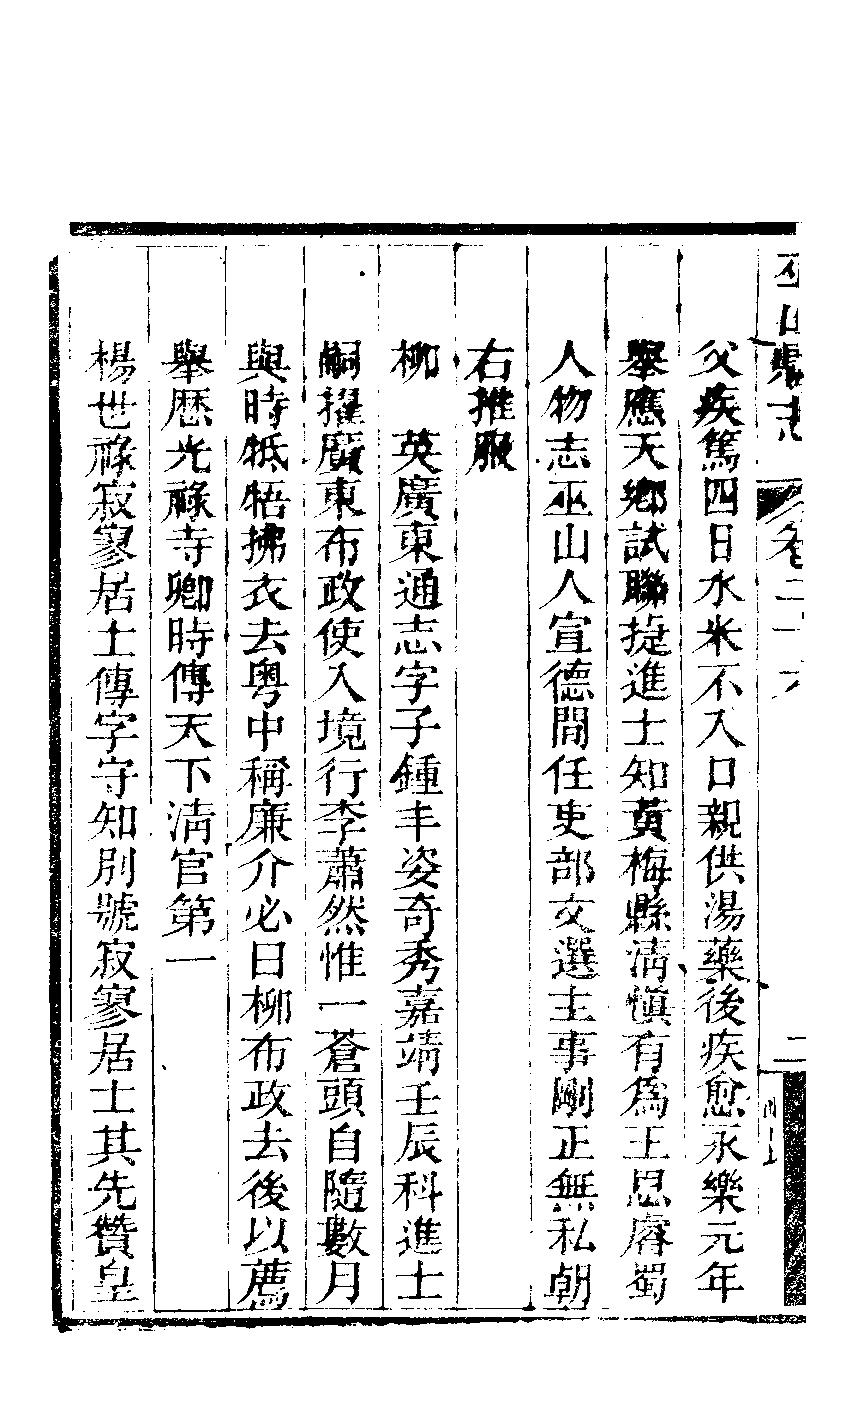 巫山縣志 卷二十六 二
父疾篤四日水米不入口親供湯藥後疾愈永樂元年
舉應天鄉試聯捷進士知黃梅縣清慎有為王思睿蜀
人物志巫山人宣德間任吏部文選主事剛正無私朝
右推服
柳　英廣東通志字子鍾丰姿奇秀嘉靖壬辰科進士
嗣擢廣東布政使入境行李蕭然惟一蒼頭自隨數月
與時牴牾拂衣去粵中稱廉介必曰柳布政去後以薦
舉歷光祿寺卿時傳天下清官第一
楊世祿寂寥居士傳字守知別號寂寥居士其先贊皇